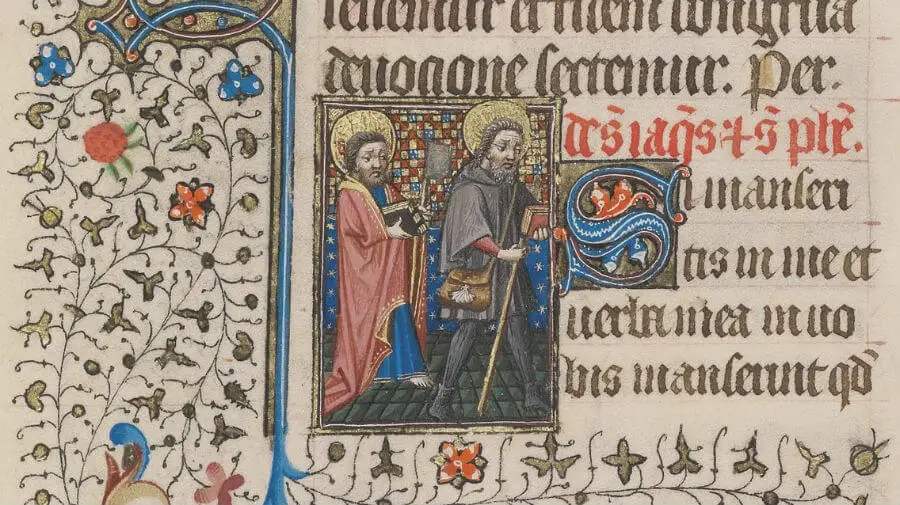 deuocione sectemur. Per.
de s̄ iacͦs + s̄ ph̄e.
Si manseri
tis in me et
uerba mea in uo
bis manserint qd̄